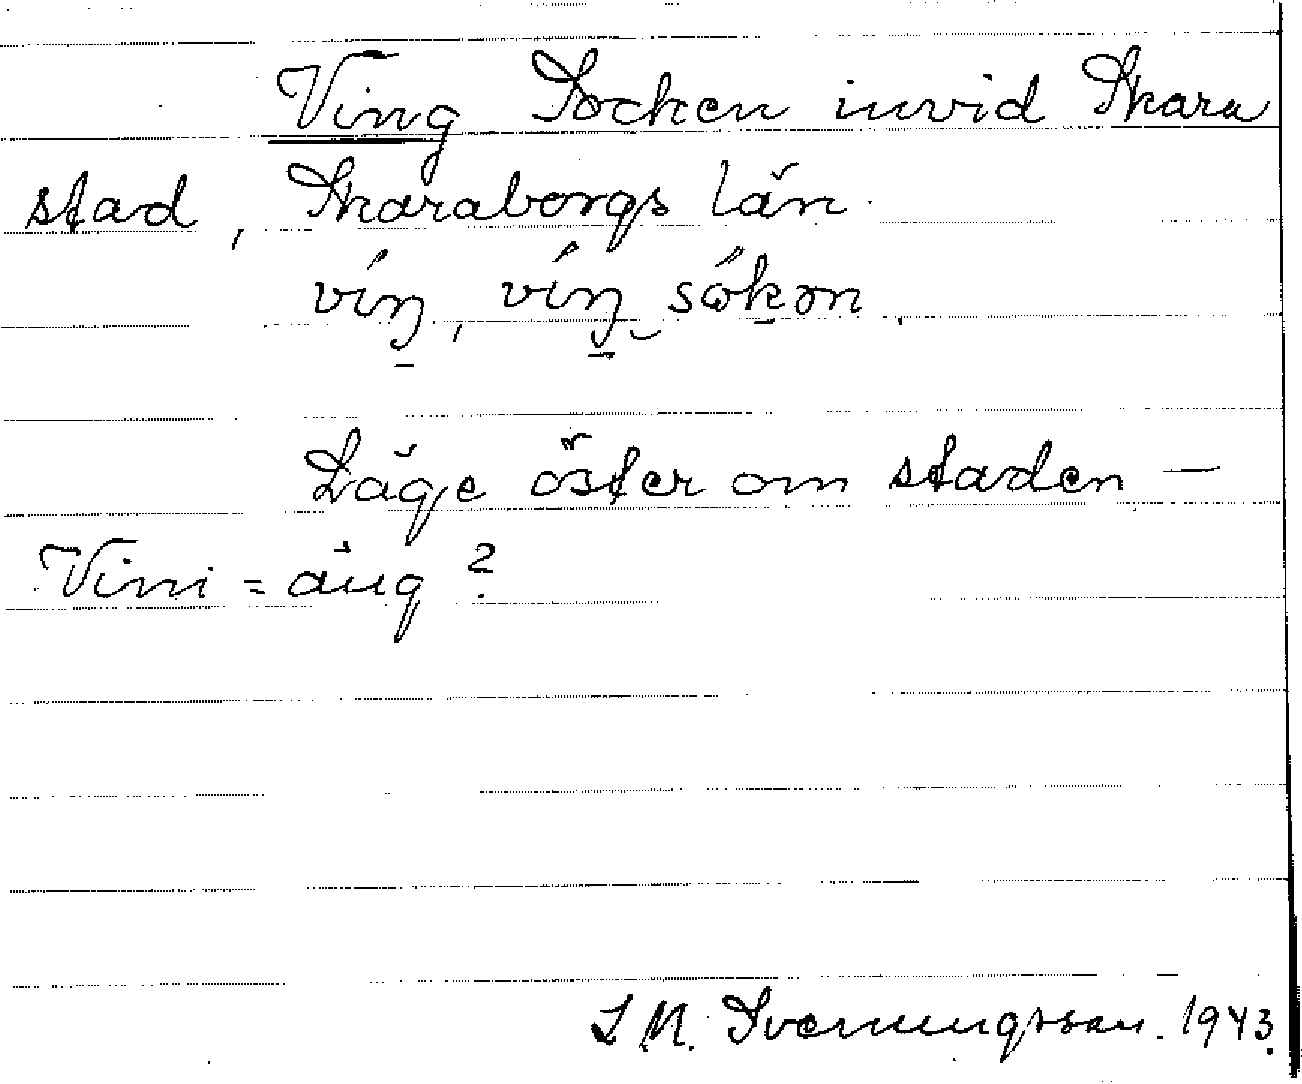 Ving Socken invid Skara
stad, Skaraborgs län
víŋ, víŋ sókən
Läge öster om staden —
Vini = äng ?
S M. Svenungsson. 1943.